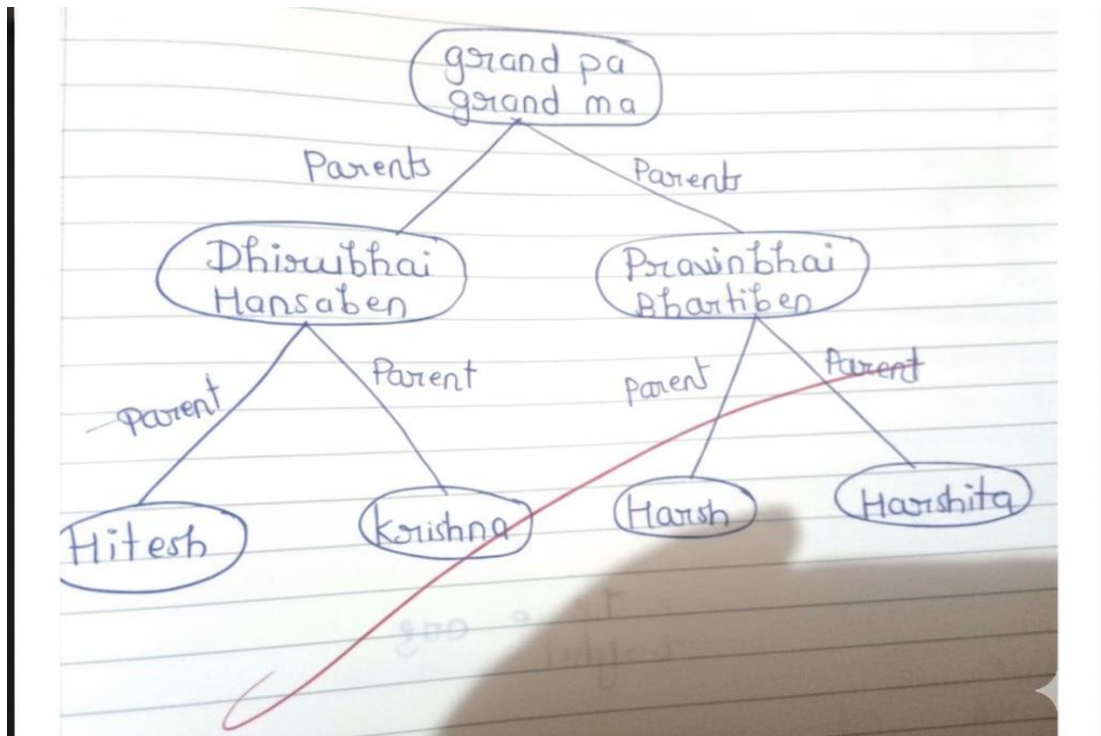 grand pa
grand ma
Parents
Parents
Dhirubhai
Hansaben
Pravinbhai
Bhartiben
Parent
Parent
Parent
Parent
Hitesh
Krishna
Harsh
Harshita